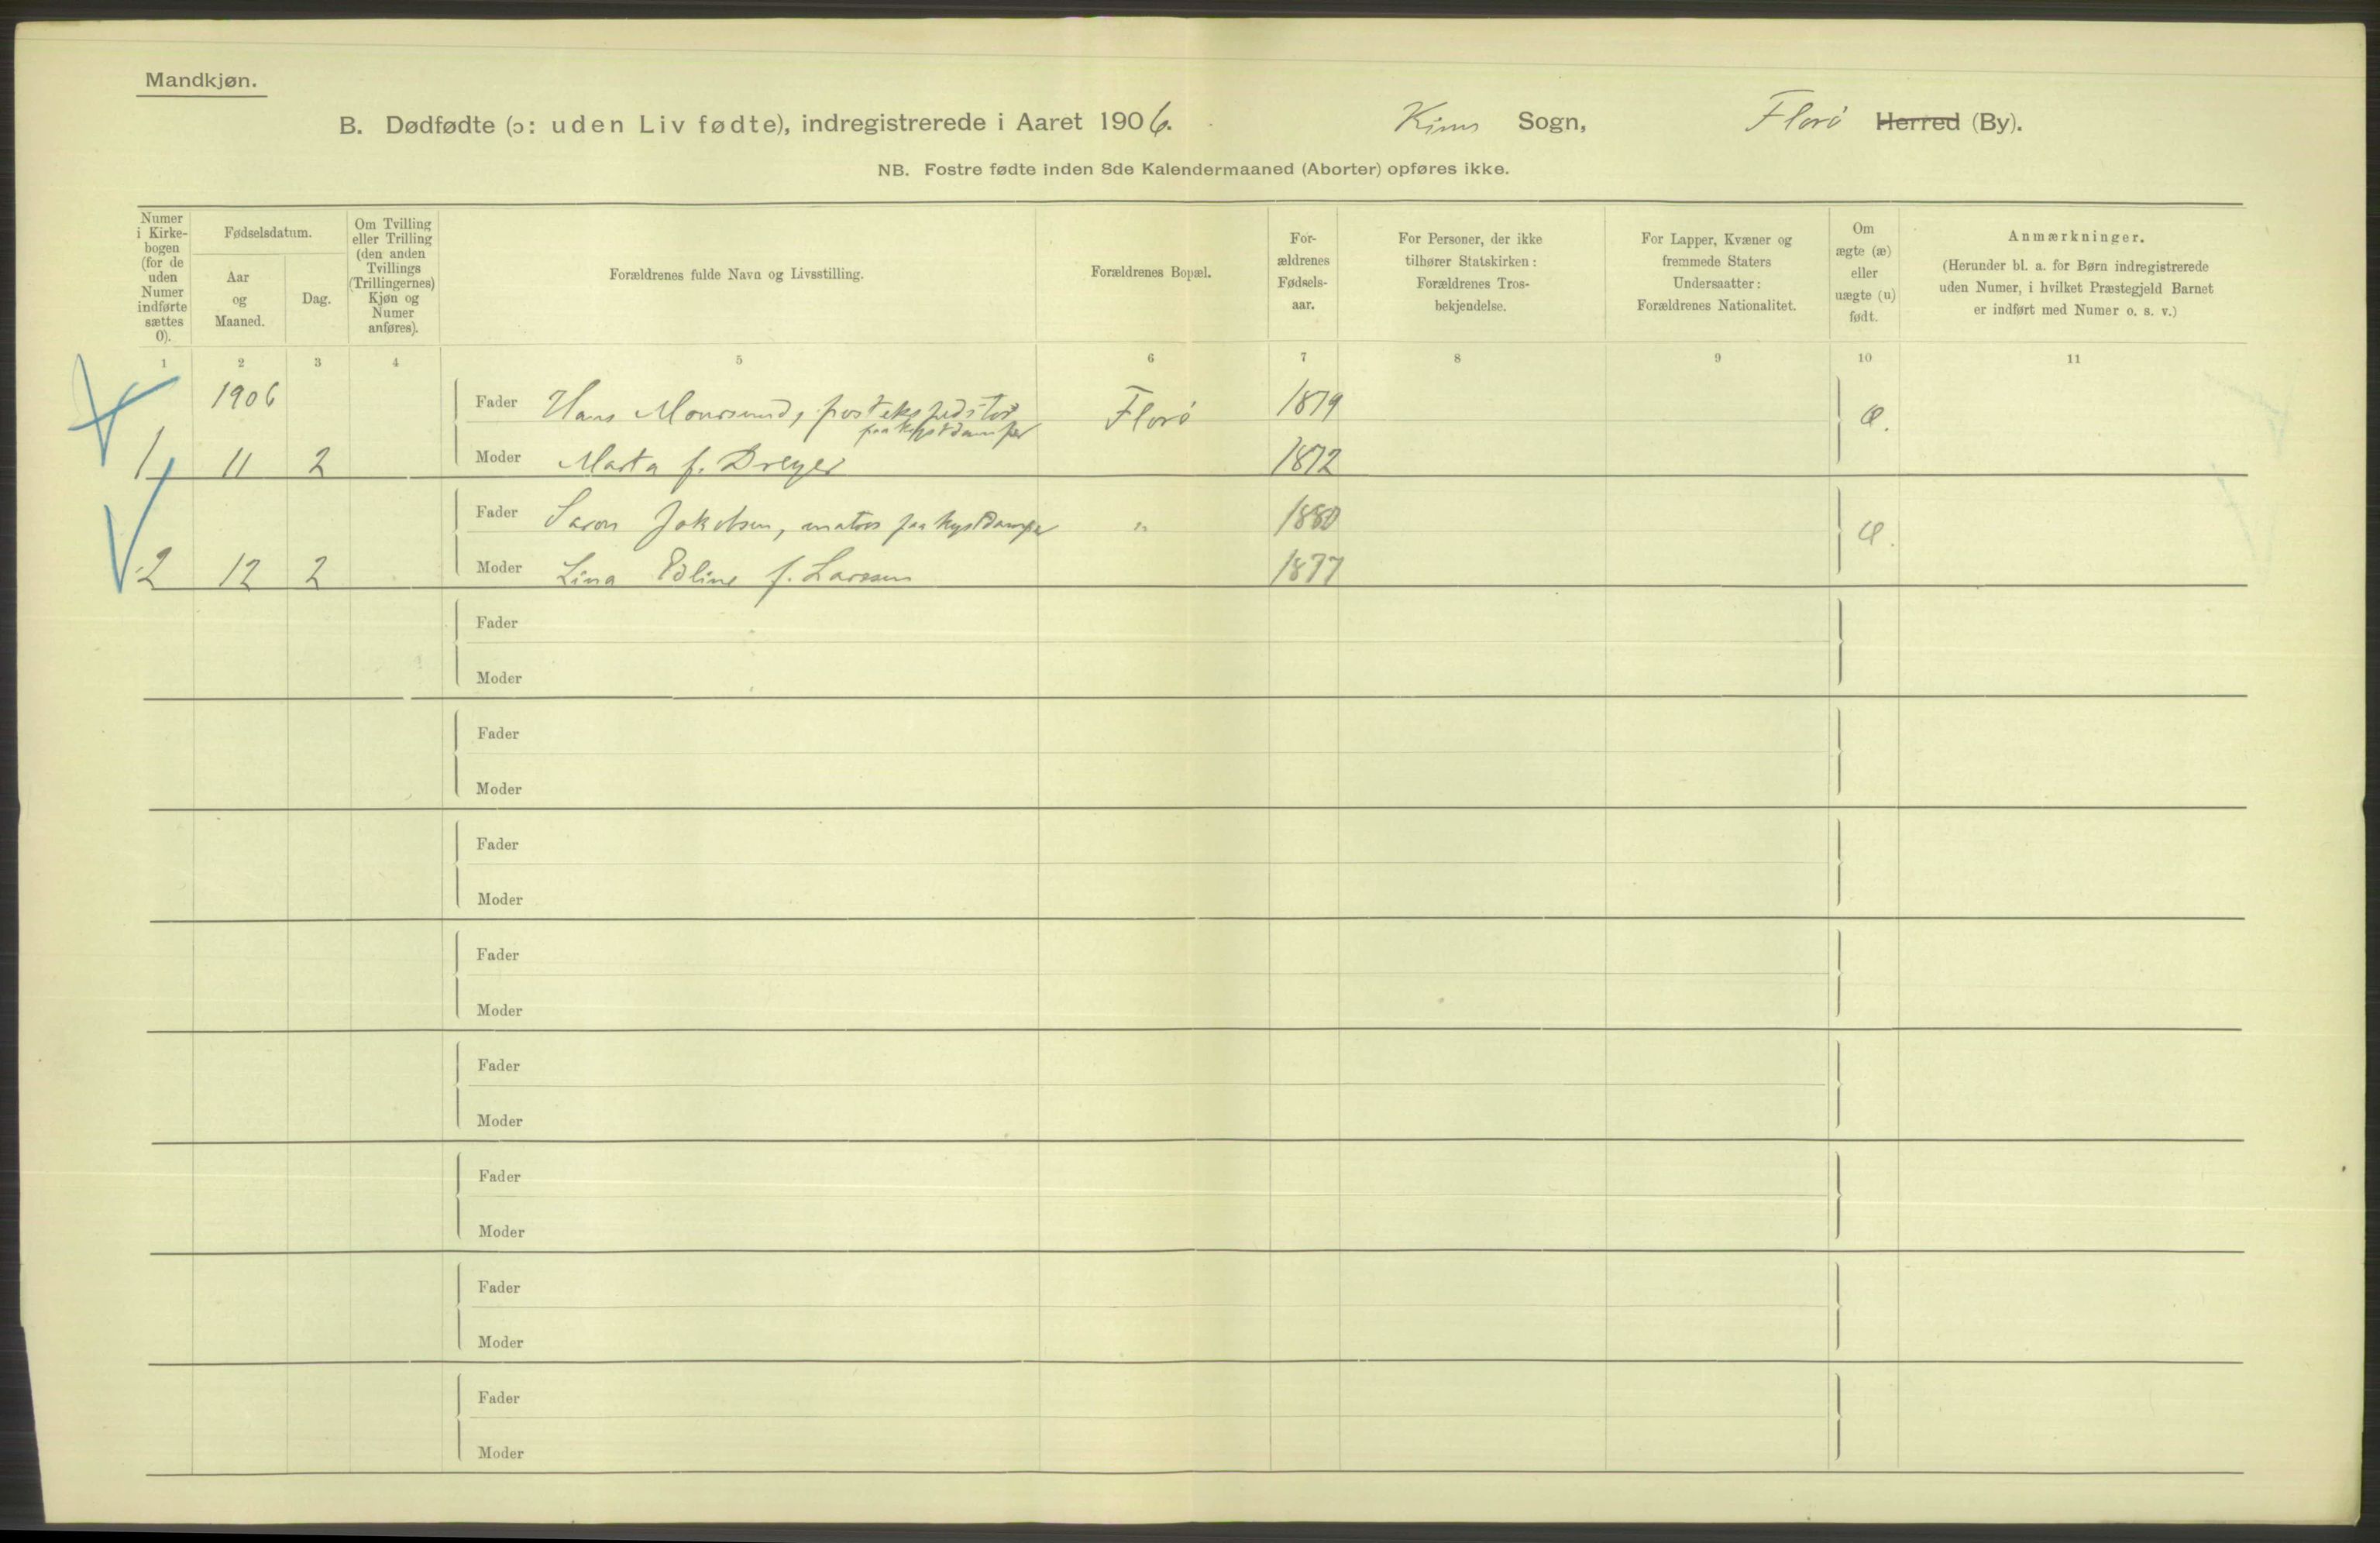 Mandkjøn.
B. Dødfødte (ɔ: uden Liv fødte), indregistrerede i Aaret 1906. Kinn Sogn, Florö Herred (By).
NB. Fostre fødte inden 8de Kalendermaaned (Aborter) opføres ikke.
Numer i Kirke-bogen (for de uden Numer indførte sættes 0).
Fødselsdatum.
Aar og Maaned.
Dag.
Om Tvilling eller Trilling (den anden Tvillings (Trillingernes) Kjøn og Numer anføres).
Forældrenes fulde Navn og Livsstilling.
Forældrenes Bopæl.
For-ældrenes Fødsels-aar.
For Personer, der ikke tilhører Statskirken: Forældrenes Tros-bekjendelse.
For Lapper, Kvæner og fremmede Staters Undersaatter: Forældrenes Nationalitet.
Om ægte (æ) eller uægte (u) født.
Anmærkninger.
(Herunder bl. a. for Børn indregistrerede uden Numer, i hvilket Præstegjeld Barnet er indført med Numer o. s. v.)
1 2 3 4 5 6 7 8 9 10 11
1906 Fader Hans postekspeditör Florö 1879 æ.
paa kystdamper
1 11 2 Moder Marta f. Dreyer 1872
Fader Saron Jakobsen, matros paa kystdamper " 1880 æ.
2 12 2 Moder Lina Edline f. Larssen 1877
Fader
Moder
Fader
Moder
Fader
Moder
Fader
Moder
Fader
Moder
Fader
Moder
Fader
Moder
Fader
Moder